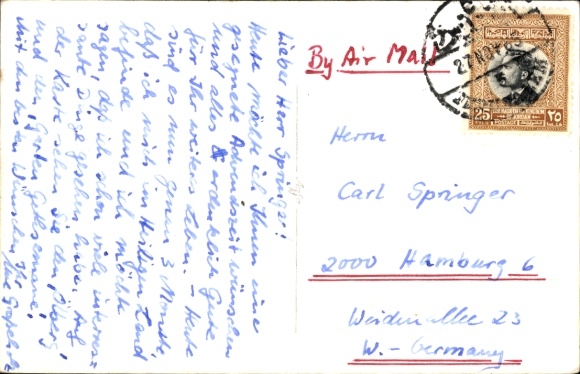 Lieber Herr Springer!
Heute möchte ich Ihnen eine
gesegnete Adventszeit wünschen
und alles erdenklich Gute
für Ihr weiteres Leben. – Heute
sind es nun genau 3 Monate,
daß ich mich im Heiligen Land
befinde und ich möchte
sagen, daß ich schon viele interes=
sante Dinge gesehen habe. Auf
der Karte sehen Sie den "Ölberg"
und den "Garten Gethsemane".
Mit den besten Wünschen Ihr
By Air Mail
27 NO
25
٢٥
THE HASHEMITE KINGDOM
OF JORDAN
POSTAGE
Herrn
Carl Springer
2000 Hamburg 6
Weidenallee 23
W. - Germany